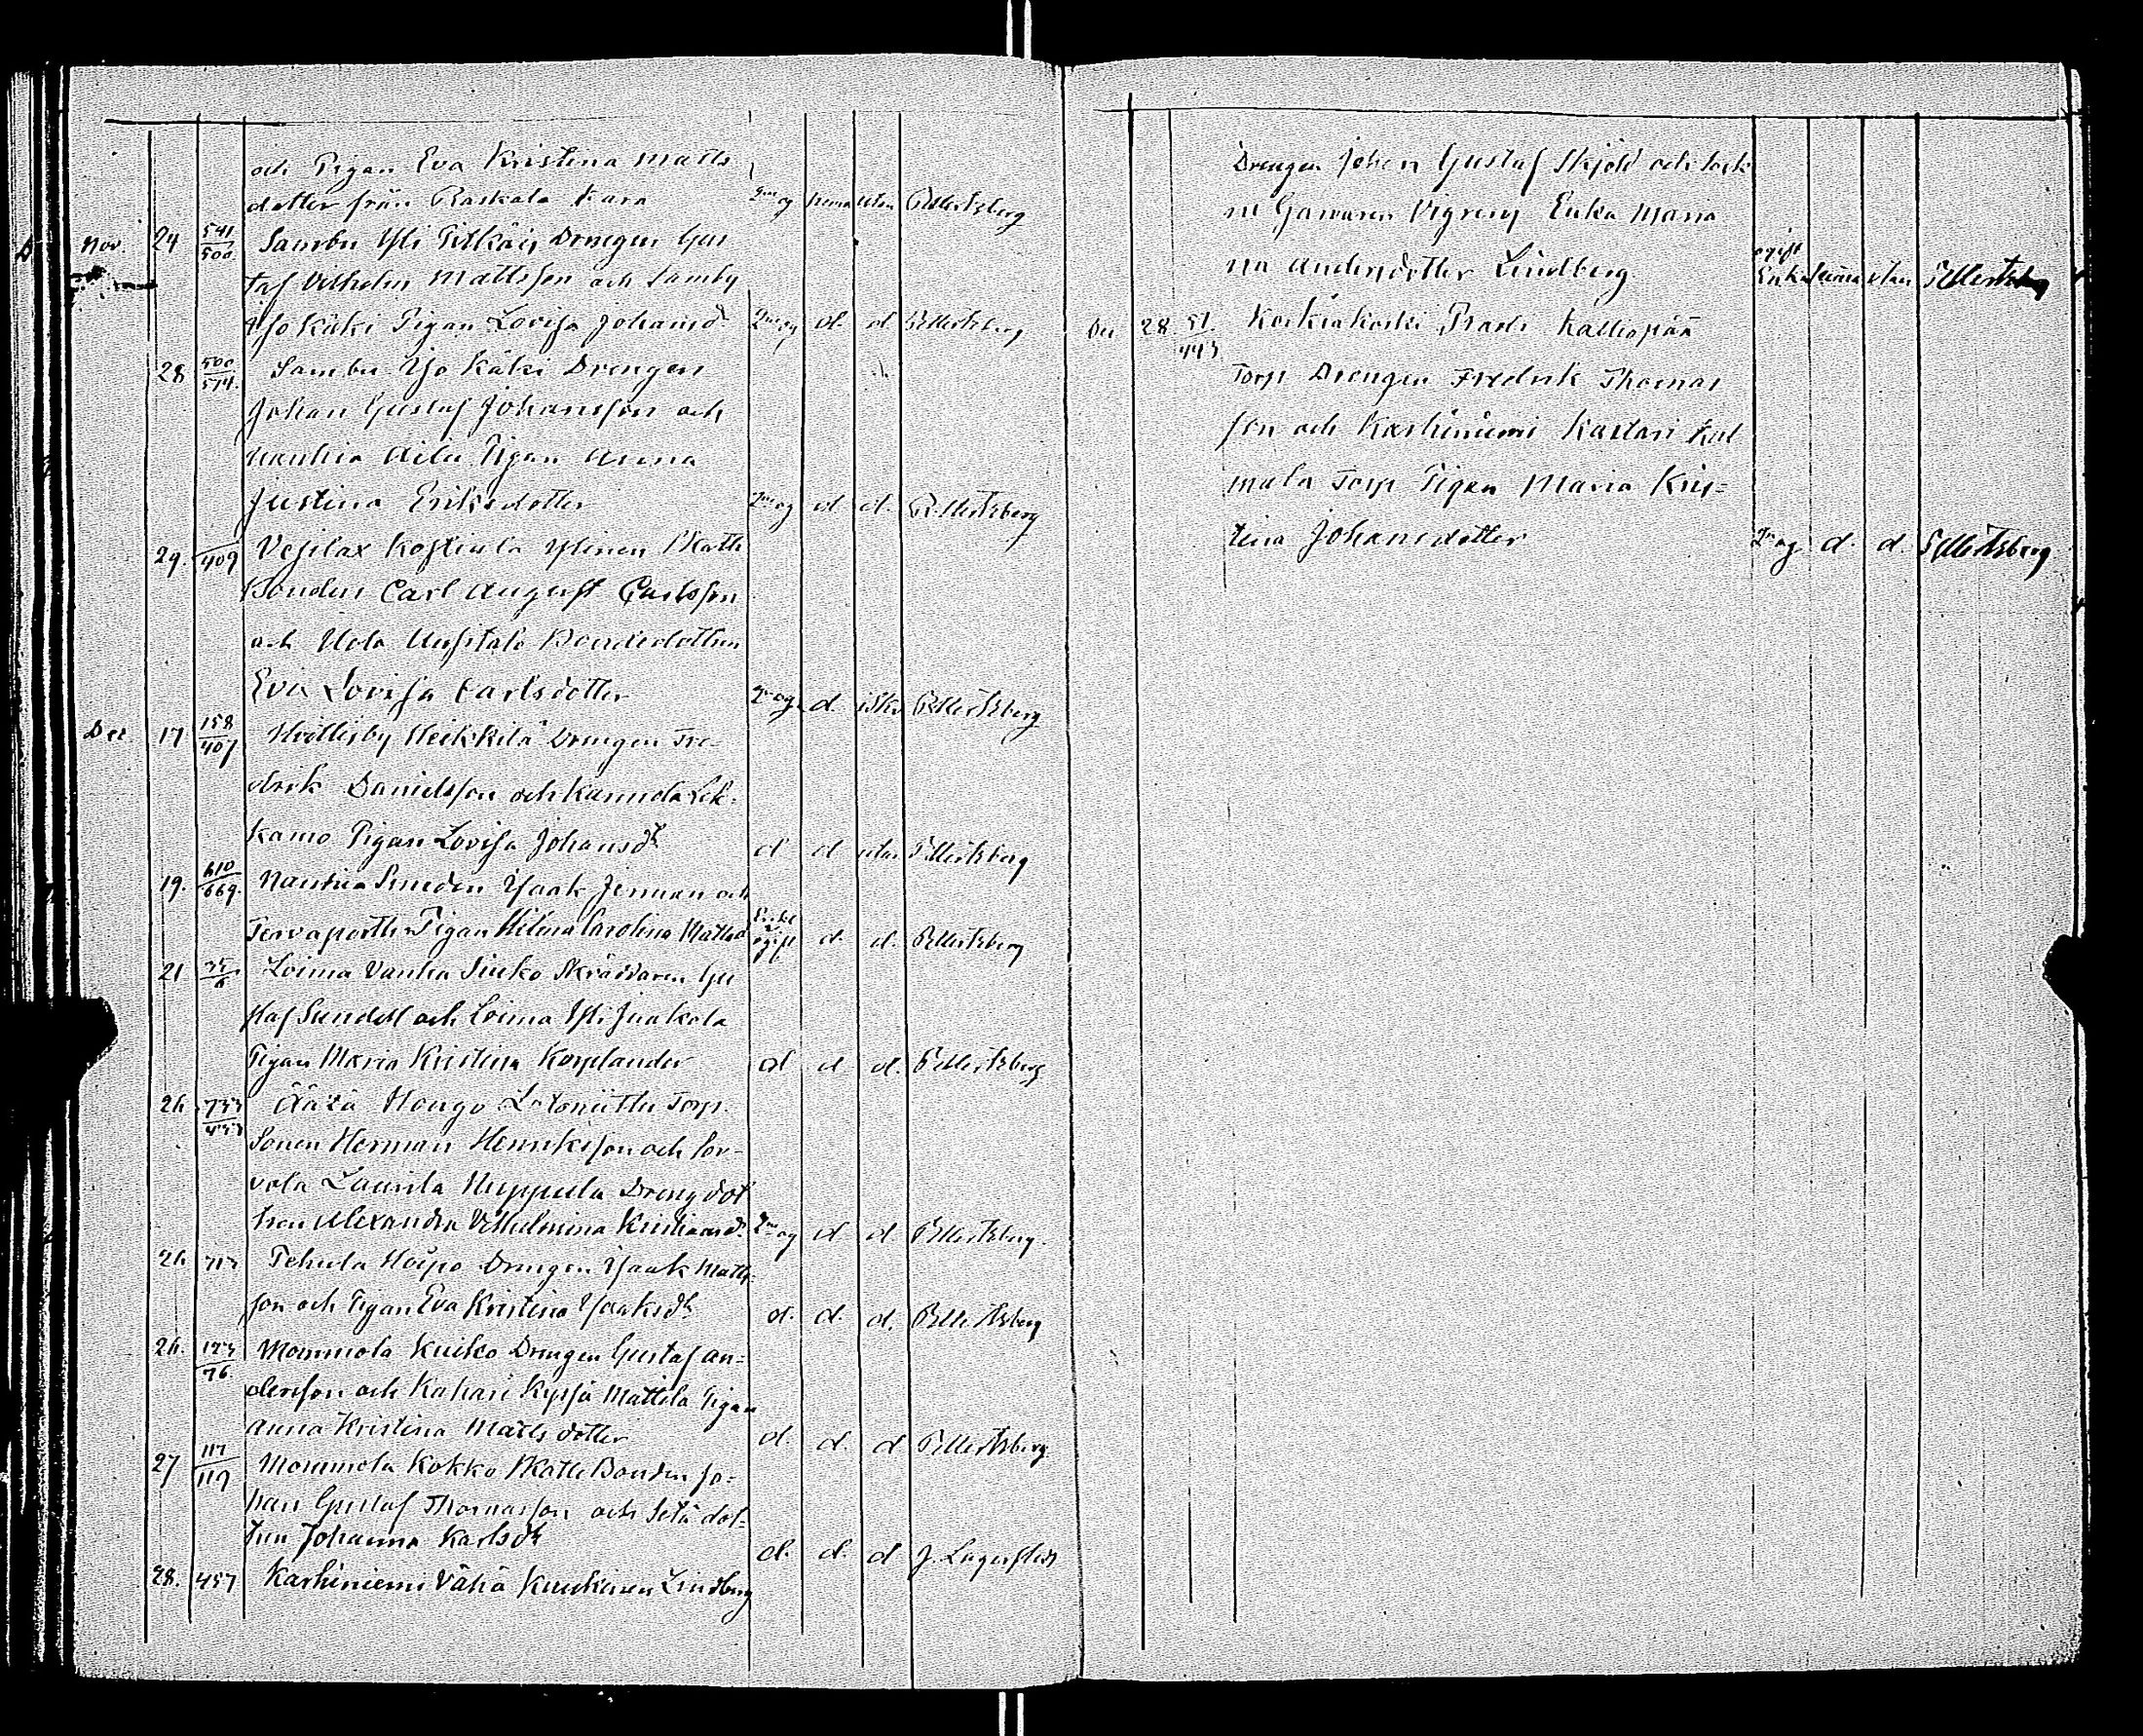 och Pigan Eva Kristina Matts
dotter från Raskala Kara 2ne og hema utan PEllertsberg
Nov. 24 541/500 Sambu Yli Pitkäis Drengen Gus
taf Vilhelm Mattsson och Samby
Yso Käki Pigan Lovisa Johansdr 2ne og d. d PEllertsberg
28 500/514. Sambu Yso Käki Drengen
Johan Gustaf Johansson och
Nanhia Aila Pigan Anna
Justina Eriksdotter 2ne og d d. PEllertsberg
29. /409 Vesilax Koskiula Ylinen Skatte
Bonden Carl August Carlsson
och Uola Uusitalo Bondedottren
Eva Lovisa Carlsdotter 2ne og. d. PEllertsberg
Dec 17 158/407 Hvittisby Heikkilä Drengen Fre-
drik Danielsson och Kannola Lek-
kamo Pigan Lovisa Johansdr d d utan PEllertsberg
19. 610/669. Nanhia Smeden Ysaak Jernman och
Tervaportti Pigan Helena Carolina Mattsd Enkl ogift d. d. PEllertsberg
21 35/6 Loima Vanha Siuko Skräddaren Gu
staf Sundell och Loima Yli Juakola
Pigan Maria Kristina Korplander d d d. PEllertsberg
26 733/453 Torp.
Sonen Herman Henriksson och Sor-
vola Laurila Huppula Drengdot
tren Alexandra Vilhelmina Kristiansdr 2ne og d d PEllertsberg.
26 713 Tehula Hoipo Drengen Ysaak Matts-
son och Pigan Eva Kristina Ysaksdr d. d. d. PEllertsberg
26. 123/76 Mommola Kuiko Drengen Gustaf An=
dersson och Kahari Mattila Pigan
Anna Kristina Mattsdotter d. d. d PEllertsberg.
27 117/119 Mommola Kokko Skatte Bonden Jo=
han Gustaf Thomasson och Setä dot=
tren Johanna Karlsdr d. d. d J. Lagerstedt
28. 457 Karhiniemi Vähä Kuukinen Lindberg
Drengen Johan Gustaf Skjöld och
Enka Maria
na Andersdotter Lindberg ogift Enka hema utan PEllertsberg
Dec 28 51./443 Korkiakoski Prosti Kalliopää
Torp Drengen Fredrik Thomas
son och Karhiniemi Kastari Kul
mala Torp Pigan Maria Kris=
tina Johansdotter 2ne og d. d. PEllertsberg